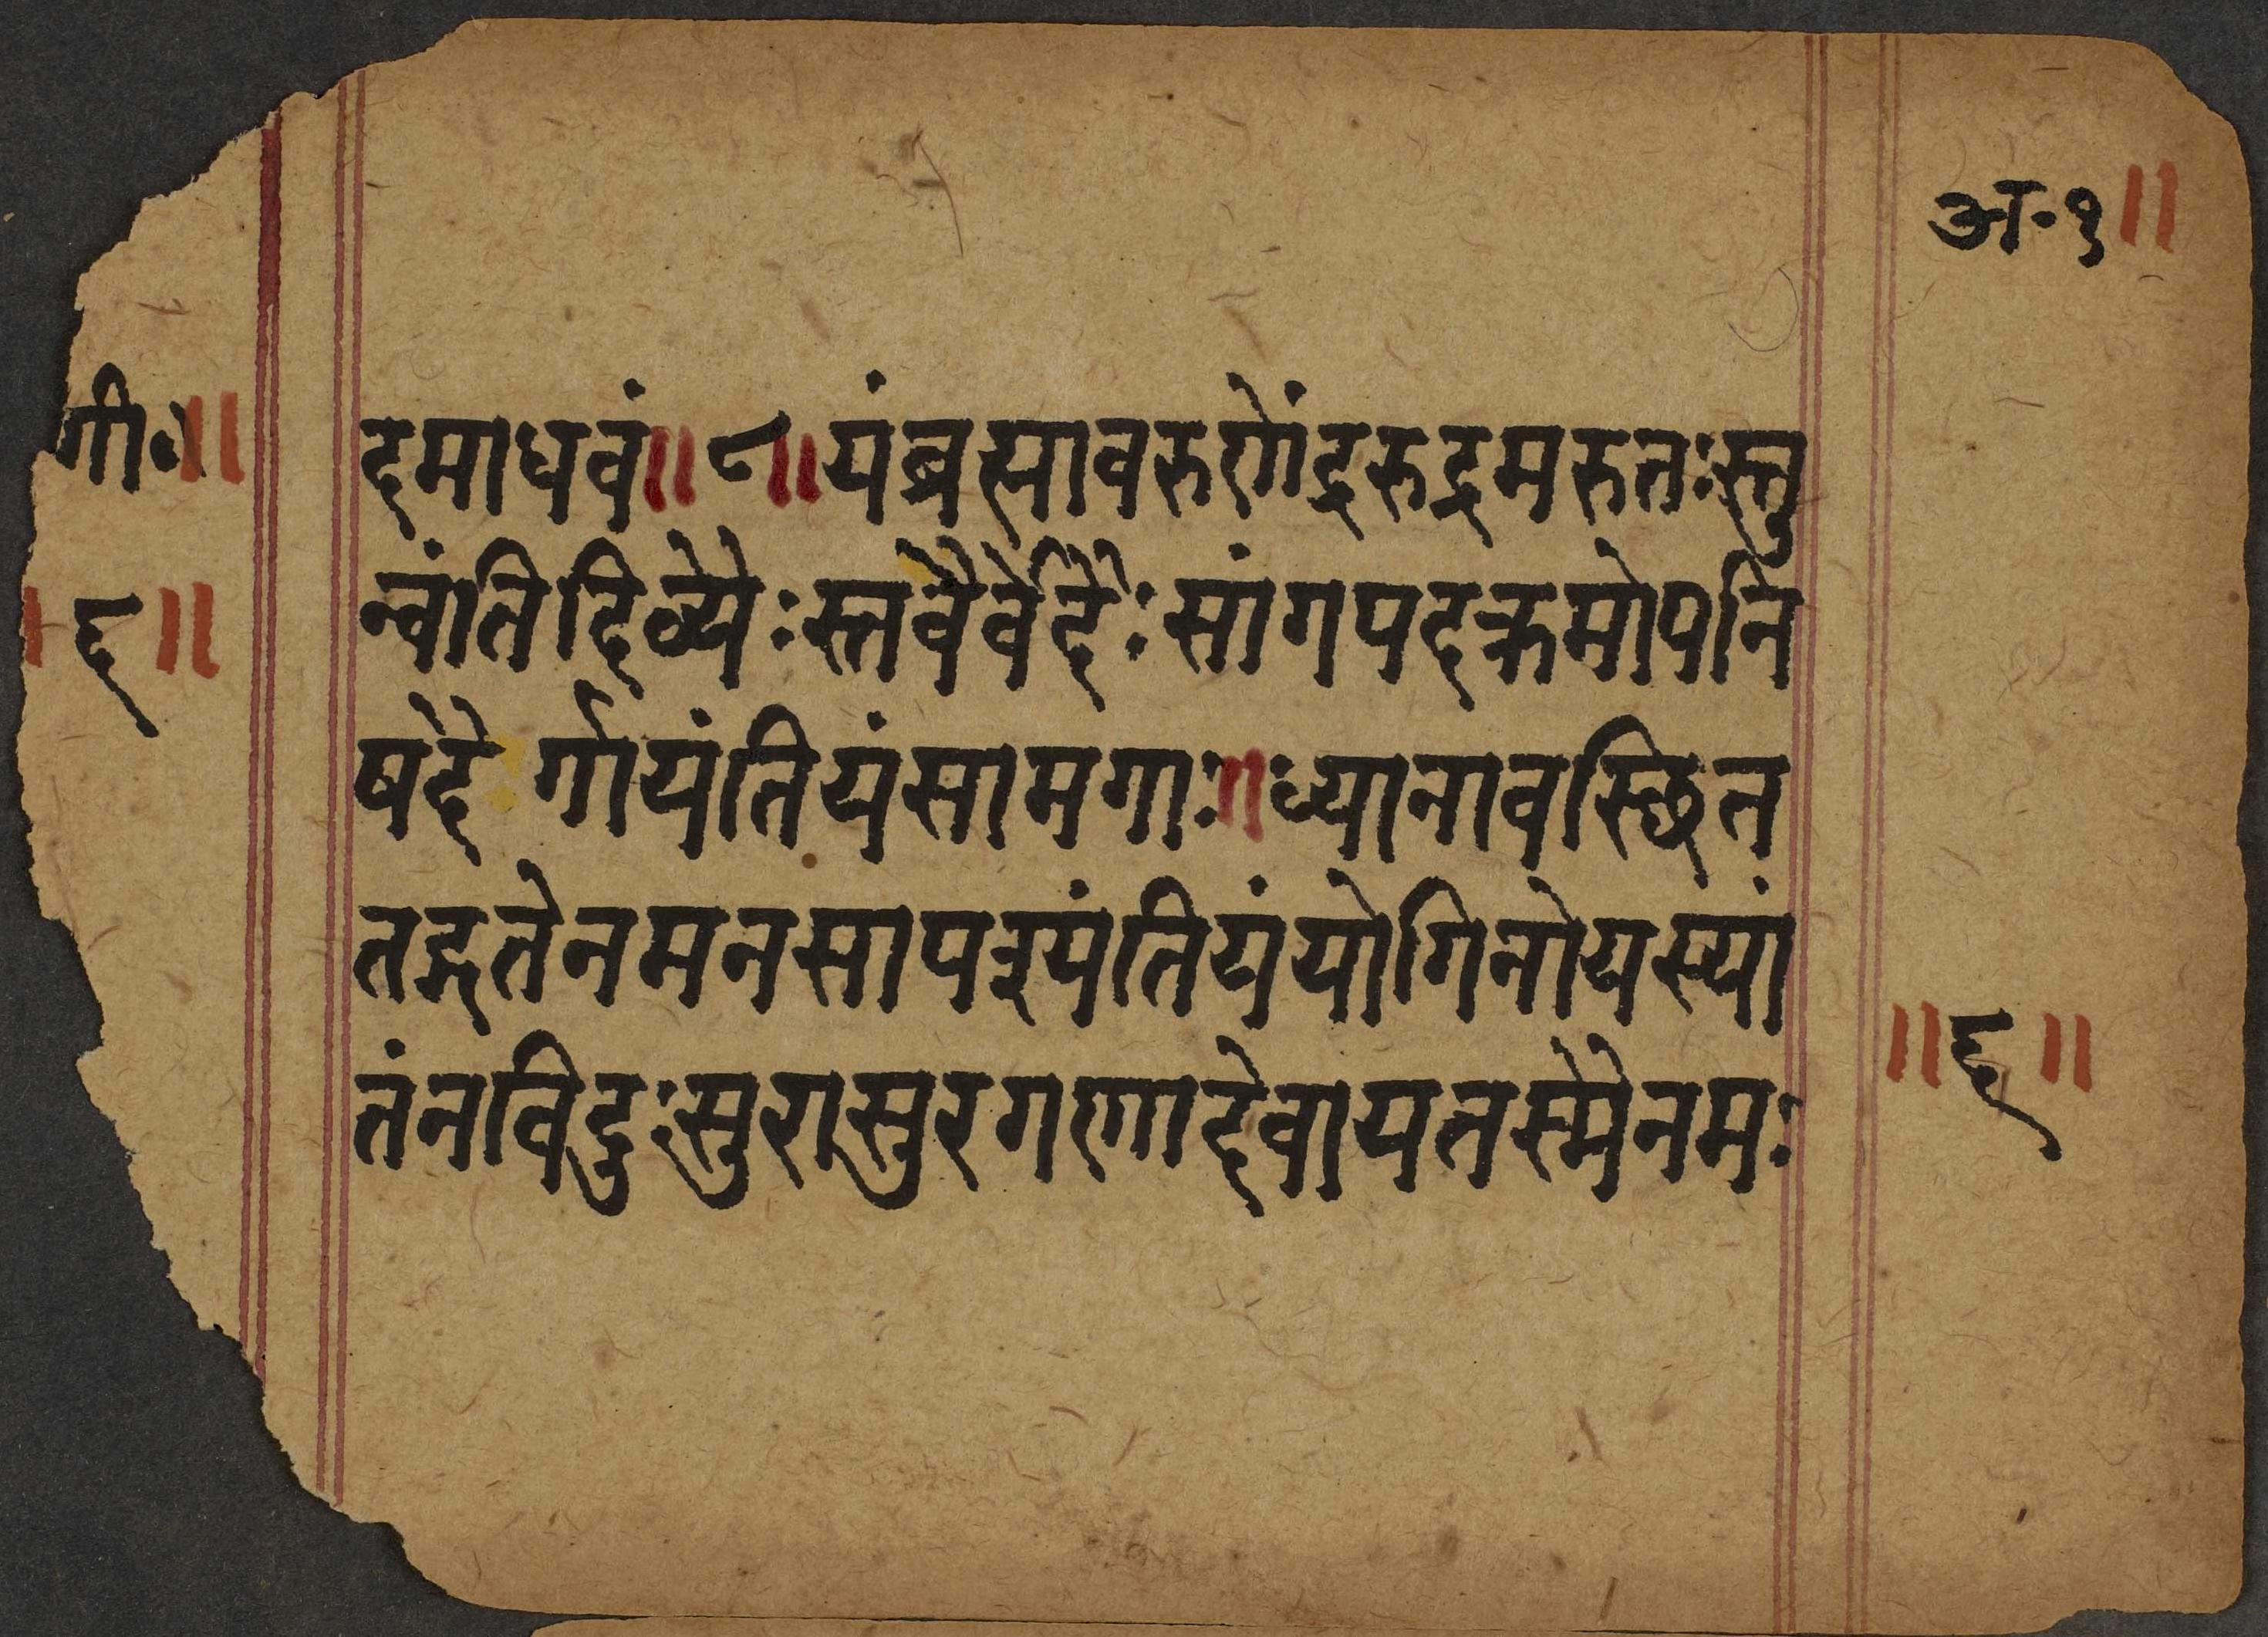 अ॰१॥
गी॰॥
दमाधवं॥८॥यंब्रह्मावरुणेंद्ररुद्रमरुतःस्तु
॥६॥
न्वंतिदिव्येःस्तवैर्वेदैःसांगपदक्रमोपनि
षदैर्गायंतियंसामगाः॥ध्यानावस्छित
तद्गतेनमनसापश्यंतियंयोगिनोयस्यां
॥६॥
तंनविदुःसुरासुरगणादेवायतस्मैनमः